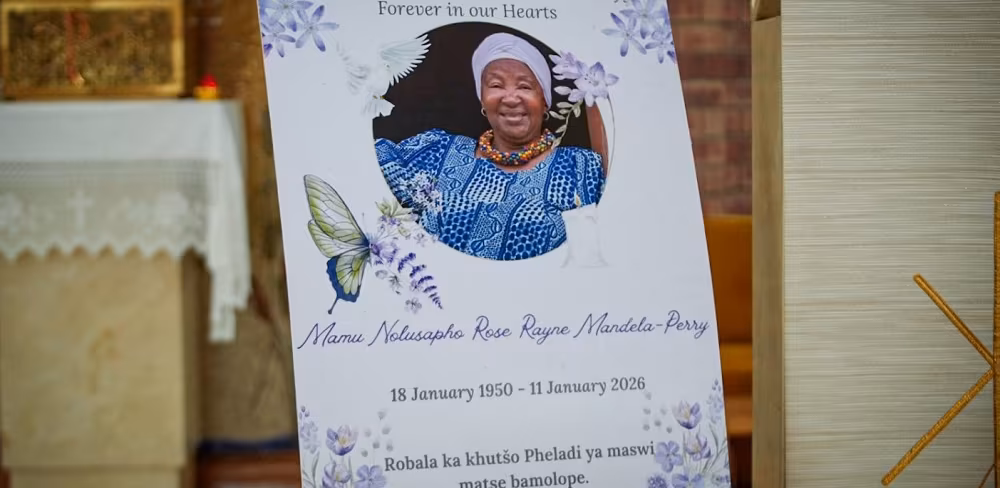 Forever in our Hearts
Mamu Nolusapho Rose Rayne Mandela-Perry
18 January 1950 - 11 January 2026
Robala ka khutšo Pheladi ya maswi
matse bamolope.